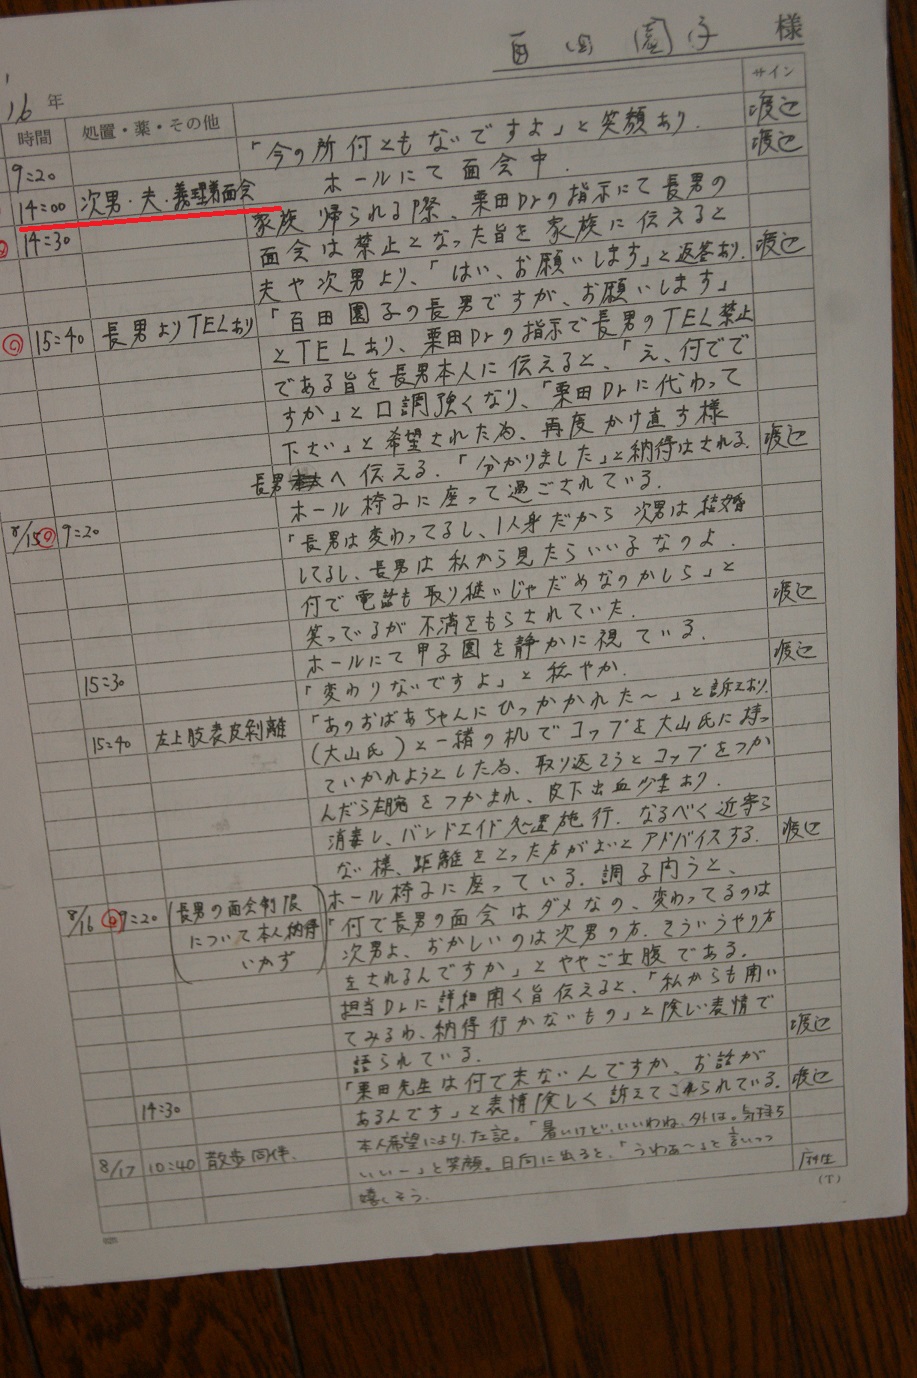 百田園子 様
16年
時間 処置・薬・その他 サイン
9:20 「今の所何ともないですよ」と笑顔あり. 渡辺
14:00 次男・夫・義理弟面会 ホールにて面会中. 渡辺
14:30 家族帰られる際、栗田Drの指示にて長男の
面会は禁止となった旨を家族に伝えると
夫や次男より、「はい、お願いします」と返答あり. 渡辺
15:40 長男よりTELあり 「百田園子の長男ですが、お願いします」
とTELあり、栗田Drの指示で長男のTEL禁止
である旨を長男本人に伝えると、「え、何でで
すか」と口調強くなり、「栗田Drに代わって
下さい」と希望された為、再度かけ直す様
長男へ伝える.「分かりました」と納得はされる. 渡辺
8/15 9:20 ホール椅子に座って過ごされている.
「長男は変わってるし、1人身だから 次男は結婚
してるし、長男は私から見たらいい子なのよ.
何で電話も取り継いじゃだめなのかしら」と
笑っているが不満をもらされていた. 渡辺
ホールにて甲子園を静かに視ている.
15:30 「変わりないですよ」と穏やか. 渡辺
15:40 左上肢表皮剥離 「あのおばあちゃんにひっかかれた〜」と訴えあり.
(大山氏)と一緒の机でコップを大山氏に持っ
ていかれようとした為、取り返そうとコップをつか
んだら左腕をつかまれ、皮下出血少量あり.
消毒し、バンドエイド処置施行. なるべく近寄ら
ない様、距離をとった方がよいとアドバイスする. 渡辺
8/16 9:20 (長男の面会制限 ホール椅子に座っている. 調子問うと、
について本人納得 「何で長男の面会はダメなの、変わってるのは
いかず) 次男よ、おかしいのは次男の方. そういうやり方
をされるんですか」とややご立腹である.
担当Drに詳細聞く旨伝えると、「私からも聞い
てみるわ、納得行かないもの」と険しい表情で
語られている. 渡辺
「栗田先生は何で来ないんですか、お話が
14:30 あるんです」と表情険しく訴えてこられている. 渡辺
8/17 10:40 散歩同伴. 本人希望により、左記.「暑いけど、いいわね、外は。気持ち
いいー」と笑顔。日向に出ると、「うわぁ〜」と言いつつ
嬉しそう.
(T)